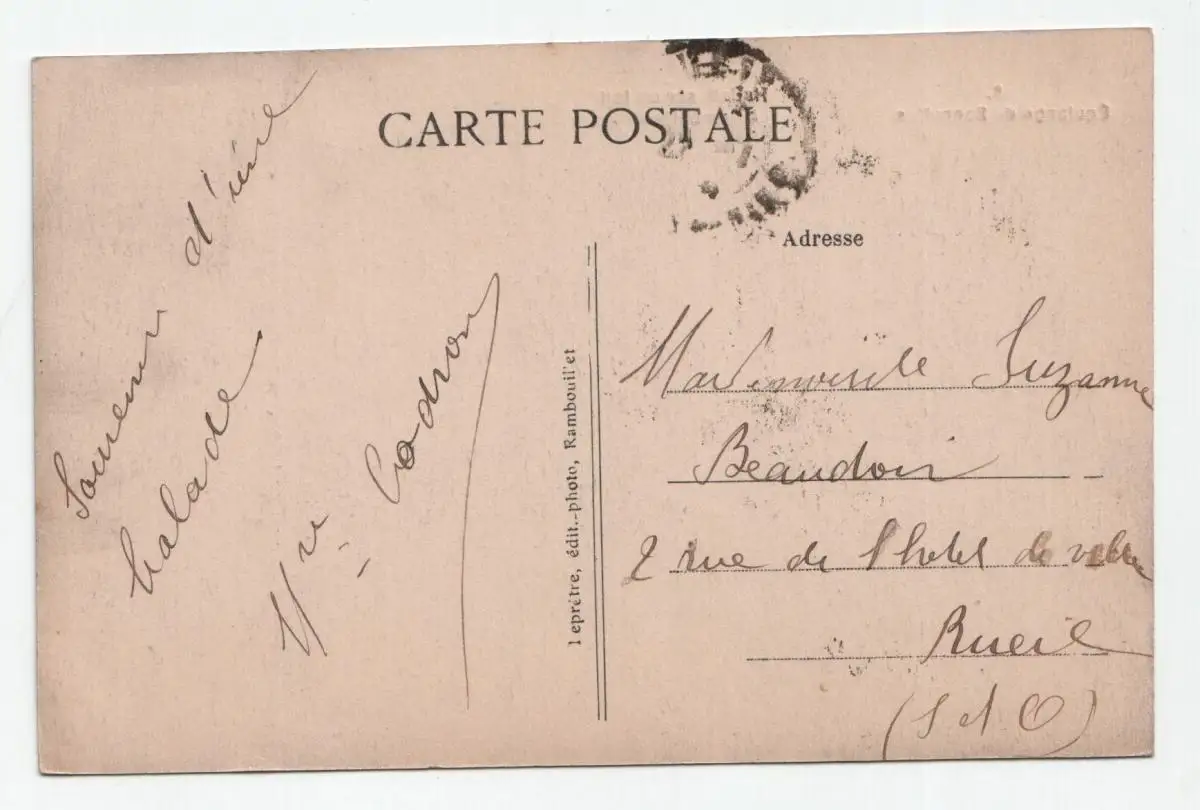 CARTE POSTALE
Adresse
Souvenir d'une
balade
Codron
Leprêtre, édit.-photo, Rambouillet
Mademoiselle Suzanne
Beaudoin
2 rue de l'hotel de ville
Rueil
(S et O)